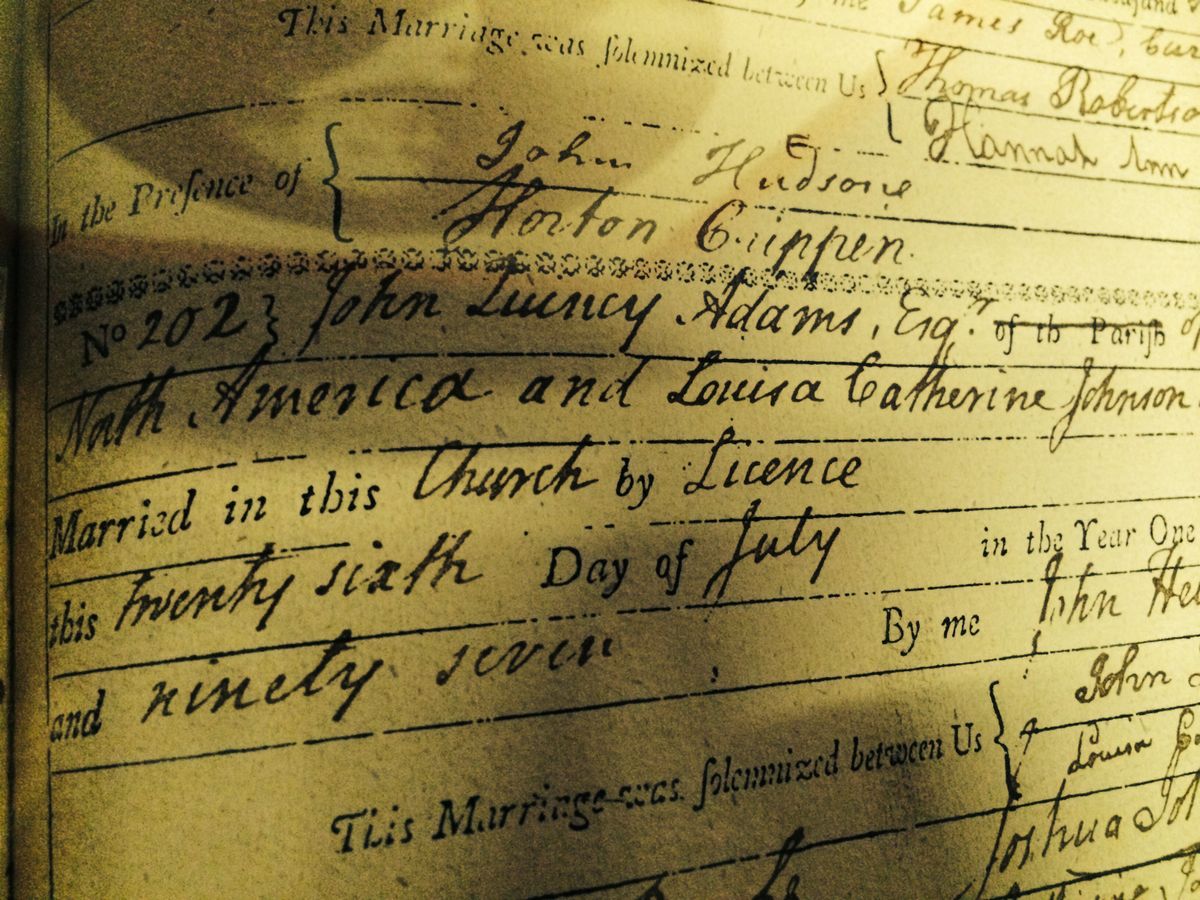 me James Roe, Cur
This Marriage was ſolemnized between Us { Thomas Robertso
Hannah Ann
In the Preſence of { John Hudsone
Horton Crippen.
No 202 } John Quincy Adams, Esqr of th Pariſh of
North America and Louisa Catherine Johnson
Married in this Church by Licence
this twenty sixth Day of July in the Year One
and ninety seven By me John He
This Marriage was ſolemnized between Us { John
Louisa
Joshua Jo